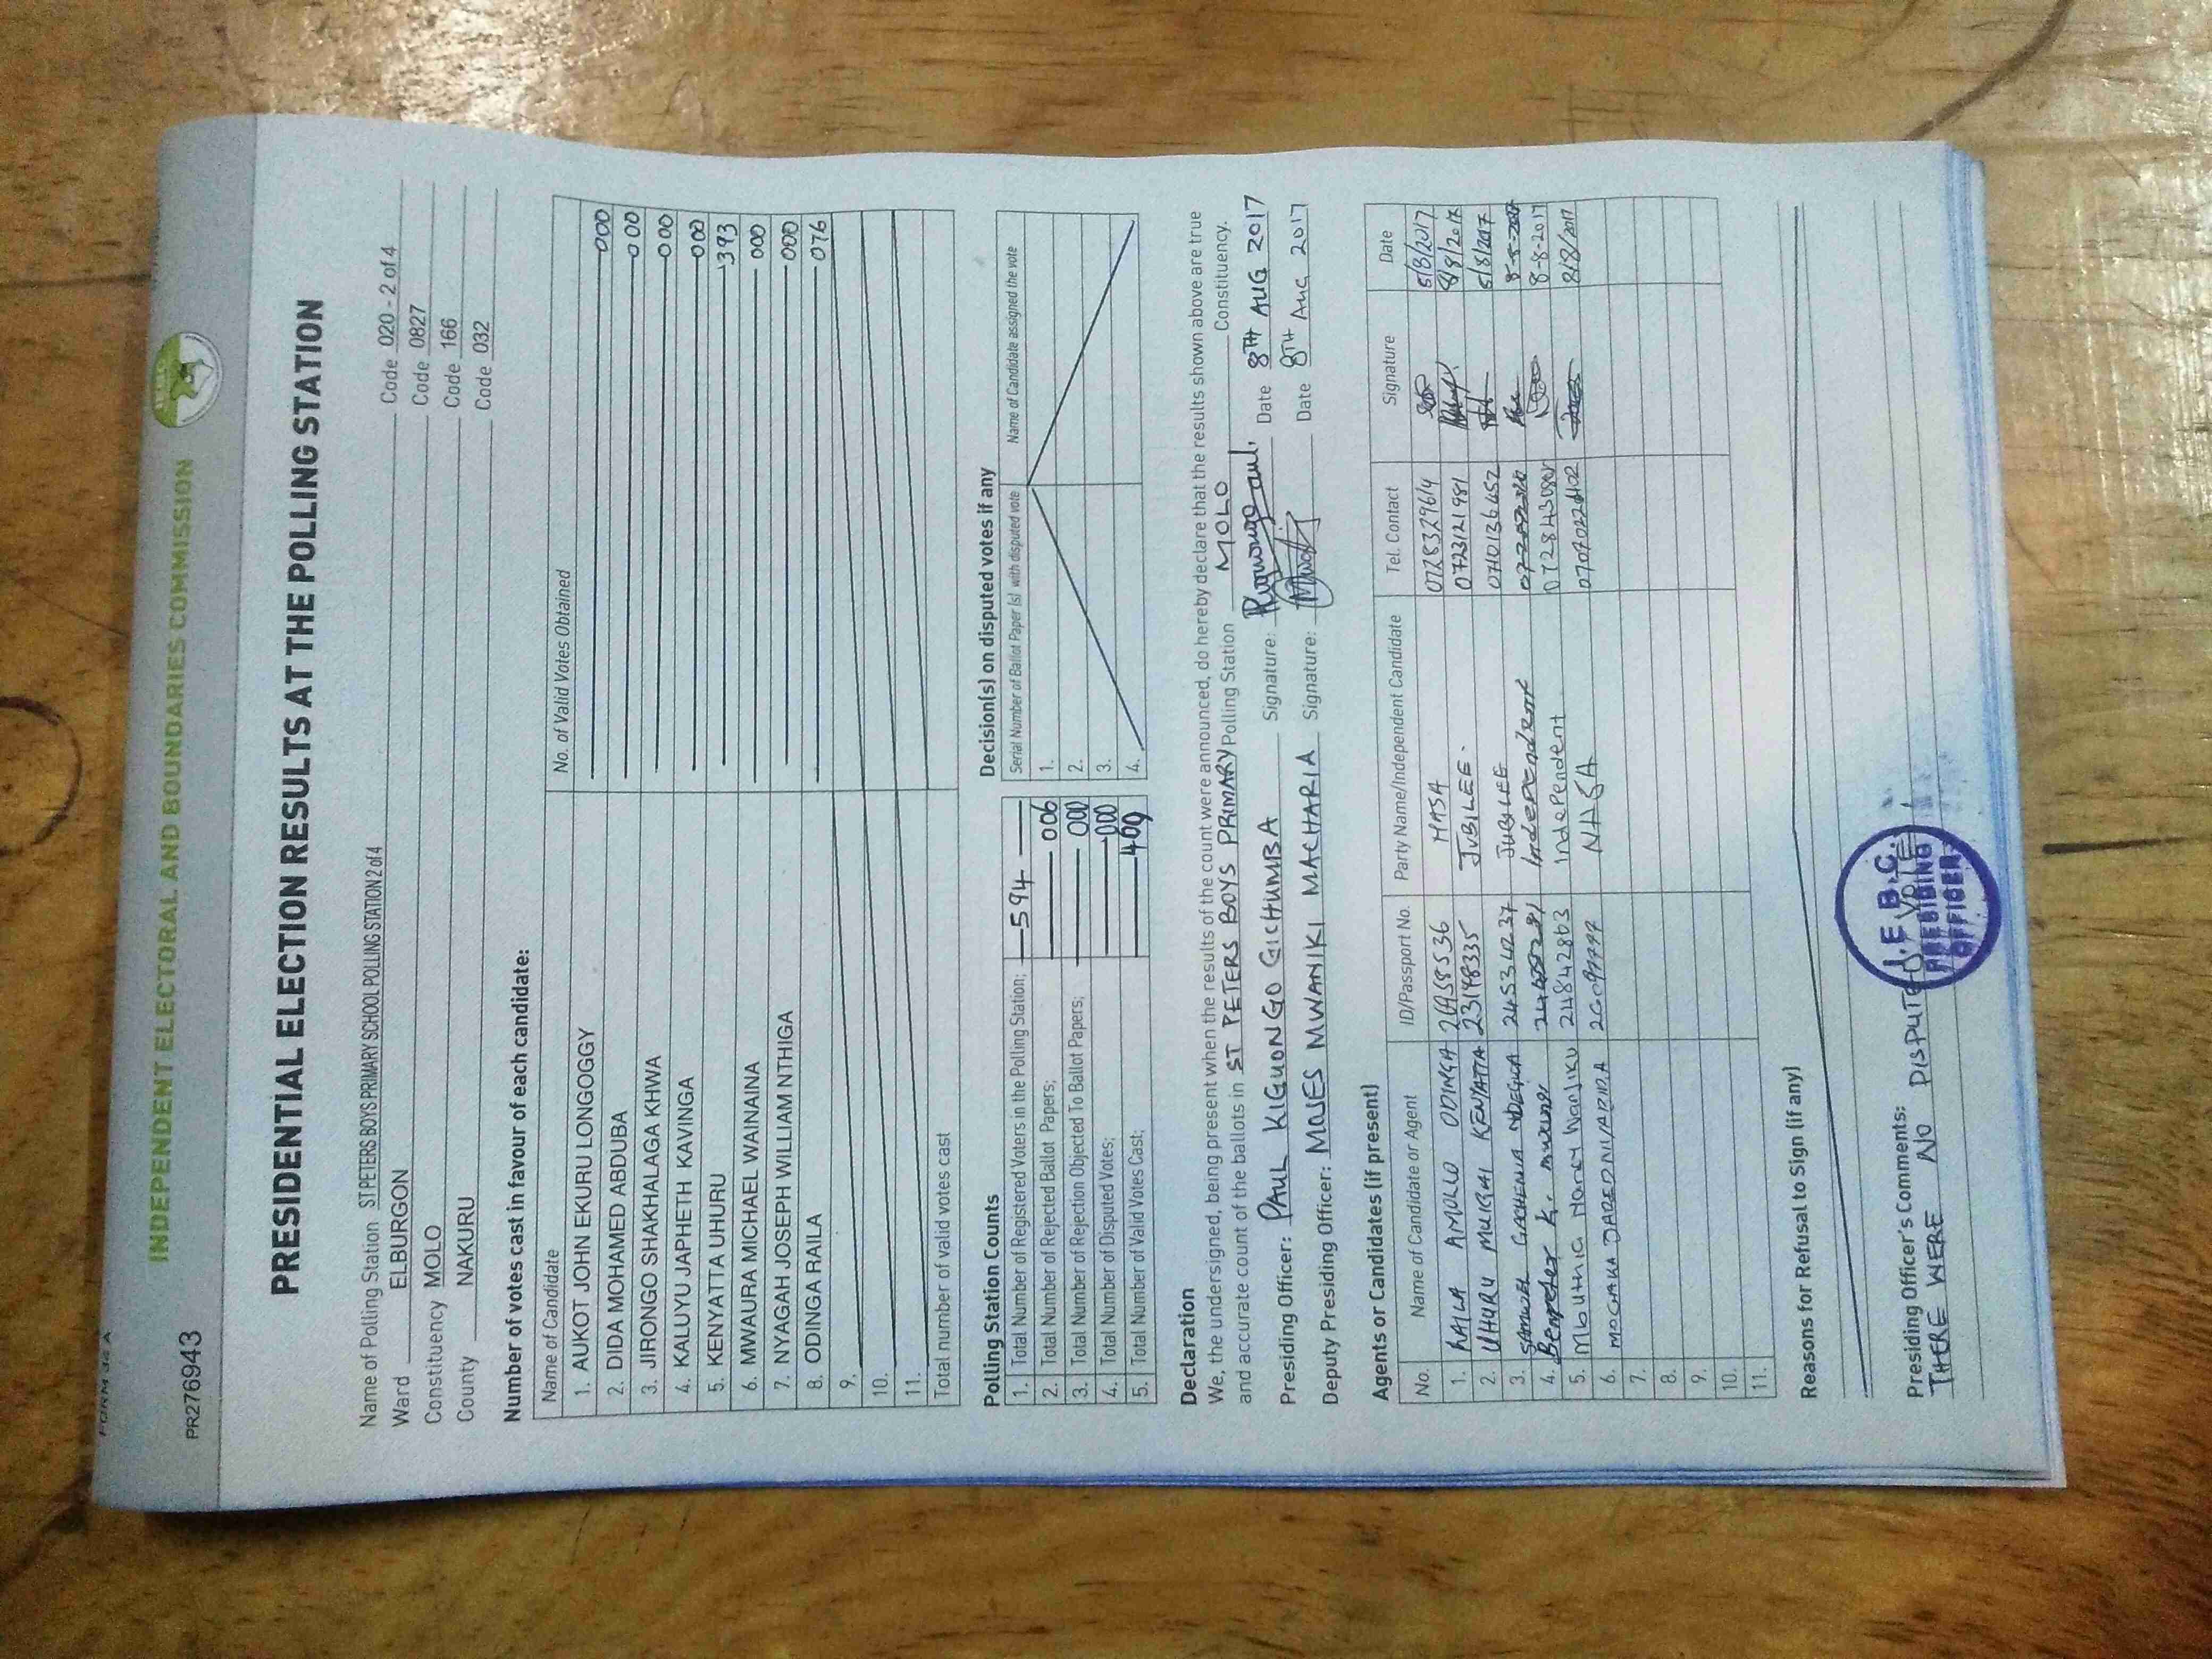 FORM 34 A
INDEPENDENT ELECTORAL AND BOUNDARIES COMMISSION
PR276943
PRESIDENTIAL ELECTION RESULTS AT THE POLLING STATION
Name of Polling Station ST PETERS BOYS PRIMARY SCHOOL POLLING STATION 2 of 4 Code 020 - 2 of 4
Ward ELBURGON Code 0827
Constituency MOLO Code 166
County NAKURU Code 032
Number of votes cast in favour of each candidate:
Name of Candidate No. of Valid Votes Obtained
1. AUKOT JOHN EKURU LONGOGGY 000
2. DIDA MOHAMED ABDUBA 000
3. JIRONGO SHAKHALAGA KHWA 000
4. KALUYU JAPHETH KAVINGA 000
5. KENYATTA UHURU 393
6. MWAURA MICHAEL WAINAINA 000
7. NYAGAH JOSEPH WILLIAM NTHIGA 000
8. ODINGA RAILA 076
9.
10.
11.
Total number of valid votes cast
Polling Station Counts
1. Total Number of Registered Voters in the Polling Station; 594
2. Total Number of Rejected Ballot Papers; 006
3. Total Number of Rejection Objected To Ballot Papers; 000
4. Total Number of Disputed Votes; 000
5. Total Number of Valid Votes Cast; 469
Decision(s) on disputed votes if any
Serial Number of Ballot Paper (s) with disputed vote Name of Candidate assigned the vote
1.
2.
3.
4.
Declaration
We, the undersigned, being present when the results of the count were announced, do hereby declare that the results shown above are true
and accurate count of the ballots in ST PETERS BOYS PRIMARY Polling Station MOLO Constituency.
Presiding Officer: PAUL KIGUONGO GICHUMBA Signature: Date 8TH AUG 2017
Deputy Presiding Officer: MOSES MWANIKI MACHARIA Signature: Date 8TH AUG 2017
Agents or Candidates (if present)
No. Name of Candidate or Agent ID/Passport No. Party Name/Independent Candidate Tel. Contact Signature Date
1. RAILA AMOLLO ODINGA 0728332964
2. UHURU MUIGAI KENYATTA 23148335 JUBILEE. 0723121981 8/8/2017
3. SAMUEL 24534237 JUBILEE 0710136457
4. Independent
5. Nancy Wanjiku 24842863 Independent 8-8-2017
6. NASA 8/8/2017
7.
8.
9.
10.
11.
Reasons for Refusal to Sign (if any)
Presiding Officer's Comments:
THERE WERE NO DISPUTED VOTE
I.E.B.C.
PRESIDING
OFFICER